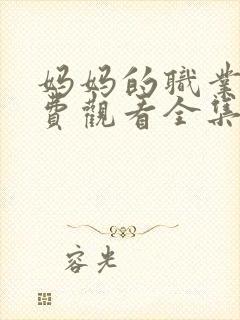 妈妈的職業
費觀看全集
容光